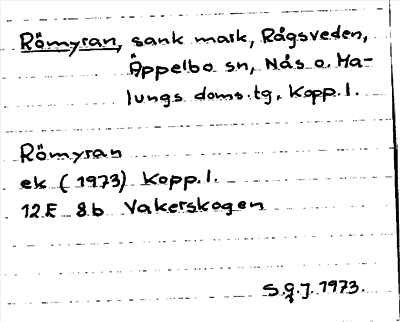 Römyran, sank mark, Rågsveden,
Äppelbo sn, Nås o. Ma-
lungs doms.tg, Kopp.l.
Römyran
ek (1973) Kopp.l.
12E 8b Vakerskogen
S.G.J. 1973.